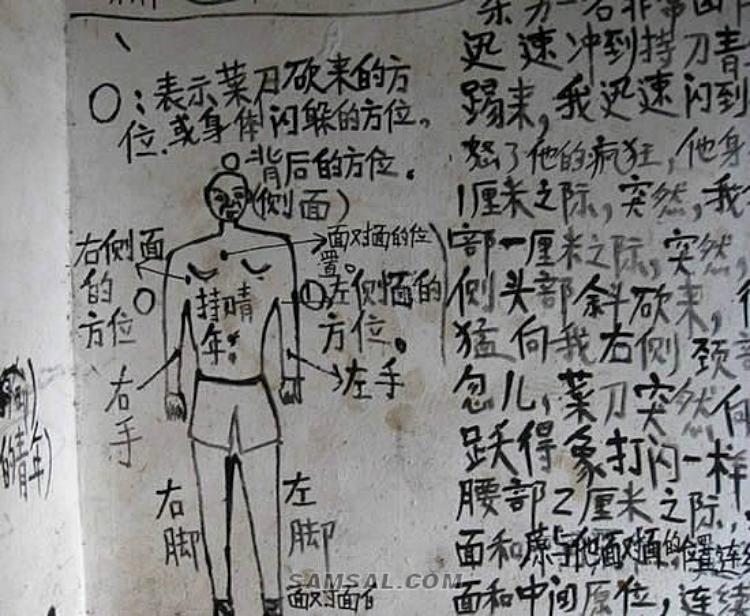 ○：表示菜刀砍来的方
位.或身体闪躲的方位。
背后的方位。
(侧面)
右侧面
的
方位
面对面的位
置。
左侧面的
方位。
持
年
右
手
左手
右
脚
左
脚
迅速冲到持刀青
踢来，我迅速闪到
怒了他的疯狂，他身
1厘米之际，突然，我
部一厘米之际，突然，
侧头部斜砍来，
猛向我右侧颈部
忽儿，菜刀突然向
跃得象打闪一样
腰部2厘米之际，
面和
面和中间原位，连续
的青年)
SAMSAL.COM